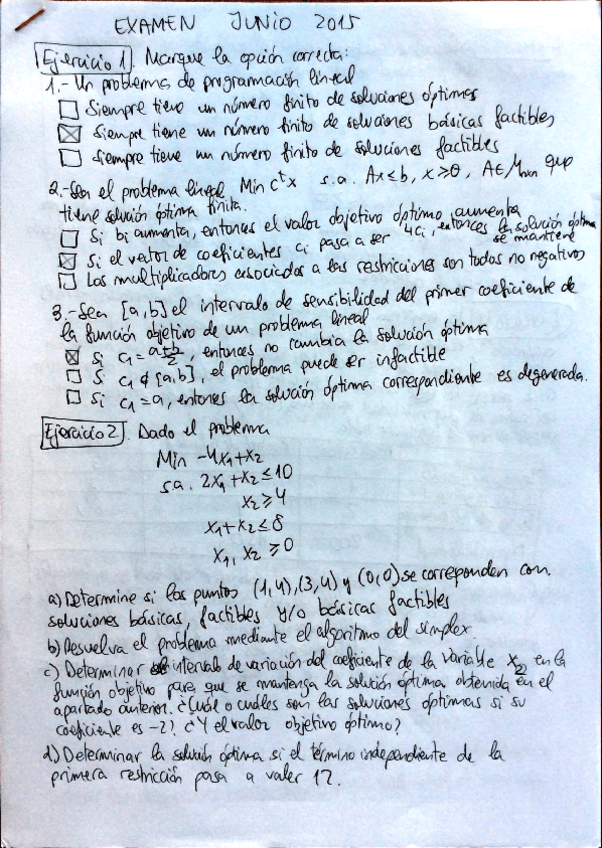 EXAMEN JUNIO 2015
Ejercicio 1. Marque la opción correcta:
1.- Un problema de programación lineal
Siempre tiene un número finito de soluciones óptimas
Siempre tiene un número finito de soluciones básicas factibles
Siempre tiene un número finito de soluciones factibles
2.- Sea el problema lineal Min cᵗx s.a. Ax≤b, x≥0, A∈Mmxn que
tiene solución óptima finita.
Si bi aumenta, entonces el valor objetivo óptimo aumenta
Si el vector de coeficientes ci pasa a ser 4ci, entonces la solución óptima
se mantiene
Los multiplicadores asociados a las restricciones son todos no negativos
3.- Sea [a,b] el intervalo de sensibilidad del primer coeficiente de
la función objetivo de un problema lineal
Si c₁=(a+b)/2, entonces no cambia la solución óptima
Si c₁∉[a,b], el problema puede ser infactible
Si c₁=a, entonces la solución óptima correspondiente es degenerada.
Ejercicio 2. Dado el problema
Min -4x₁+x₂
s.a. 2x₁+x₂≤10
x₂≥4
x₁+x₂≤8
x₁, x₂≥0
a) Determine si los puntos (1,4), (3,4) y (0,0) se corresponden con
soluciones básicas, factibles y/o básicas factibles
b) Resuelva el problema mediante el algoritmo del simplex.
c) Determinar intervalo de variación del coeficiente de la variable x₂ en la
función objetivo para que se mantenga la solución óptima obtenida en el
apartado anterior. ¿Cuál o cuáles son las soluciones óptimas si su
coeficiente es -2? ¿Y el valor objetivo óptimo?
d) Determinar la solución óptima si el término independiente de la
primera restricción pasa a valer 12.